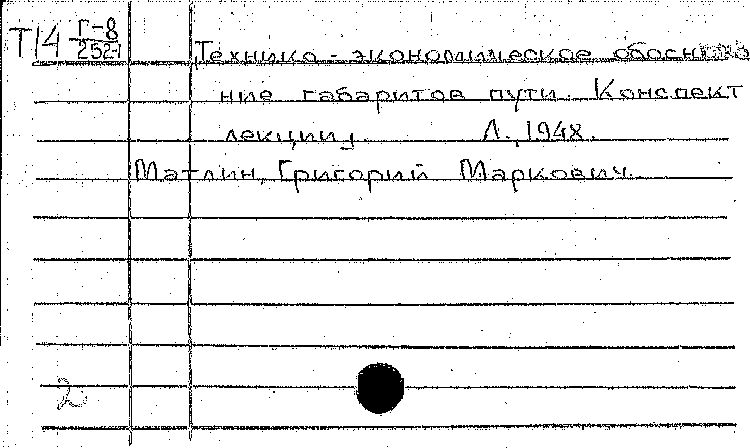 Т14 Г-8
252-1
Технико-экономическое обоснова
ние габаритов пути. Конспект
лекции, Л., 1948.
Матлин, Григорий Маркович.
2